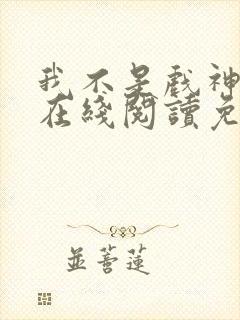 我不是戲神
在綫閱讀免
並蒂蓮